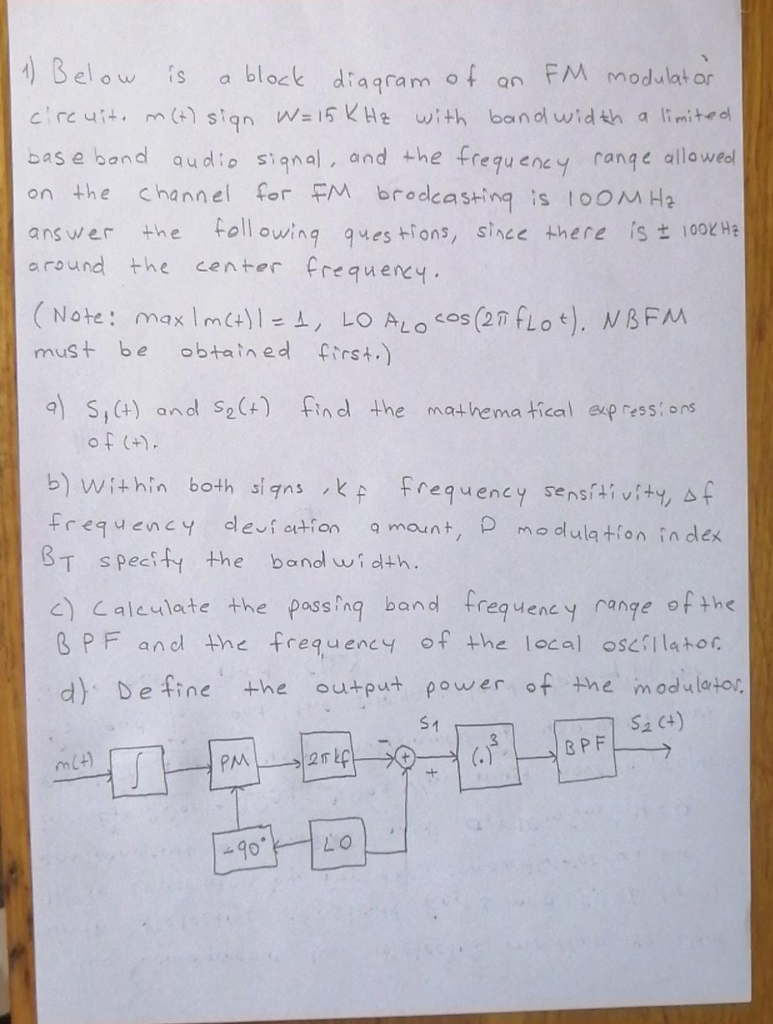 1) Below is a block diagram of an FM modulator
circuit. m(t) sign W=15 KHz with bandwidth a limited
base band audio signal, and the frequency range allowed
on the channel for FM brodcasting is 100MHz
answer the following questions, since there is ± 100KHz
around the center frequency.
(Note: max |m(t)| = 1, LO A_LO cos(2π f_LO t). NBFM
must be obtained first.)
a) S₁(t) and S₂(t) find the mathematical expressions
of (t).
b) Within both signs , kf frequency sensitivity, Δf
frequency deviation amount, D modulation index
B_T specify the bandwidth.
c) Calculate the passing band frequency range of the
BPF and the frequency of the local oscillator.
d) Define the output power of the modulator.
m(t) ∫ PM 2πkf - + + S1 (.)³ BPF S₂(t)
-90° LO